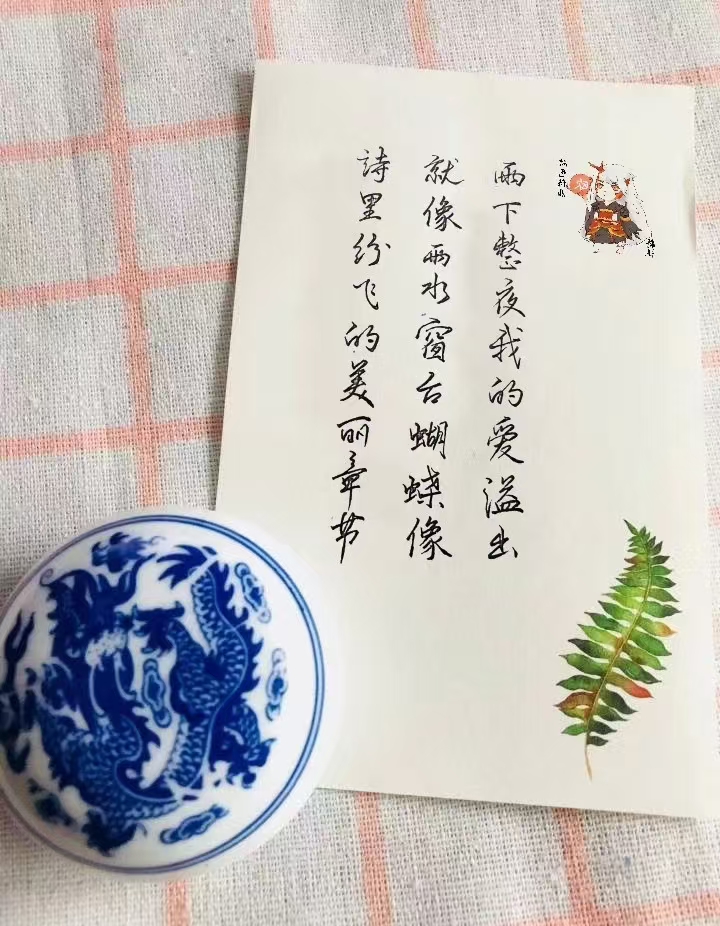 雨下整夜我的爱溢出
就像雨水窗台蝴蝶像
詩里纷飞的美丽章节